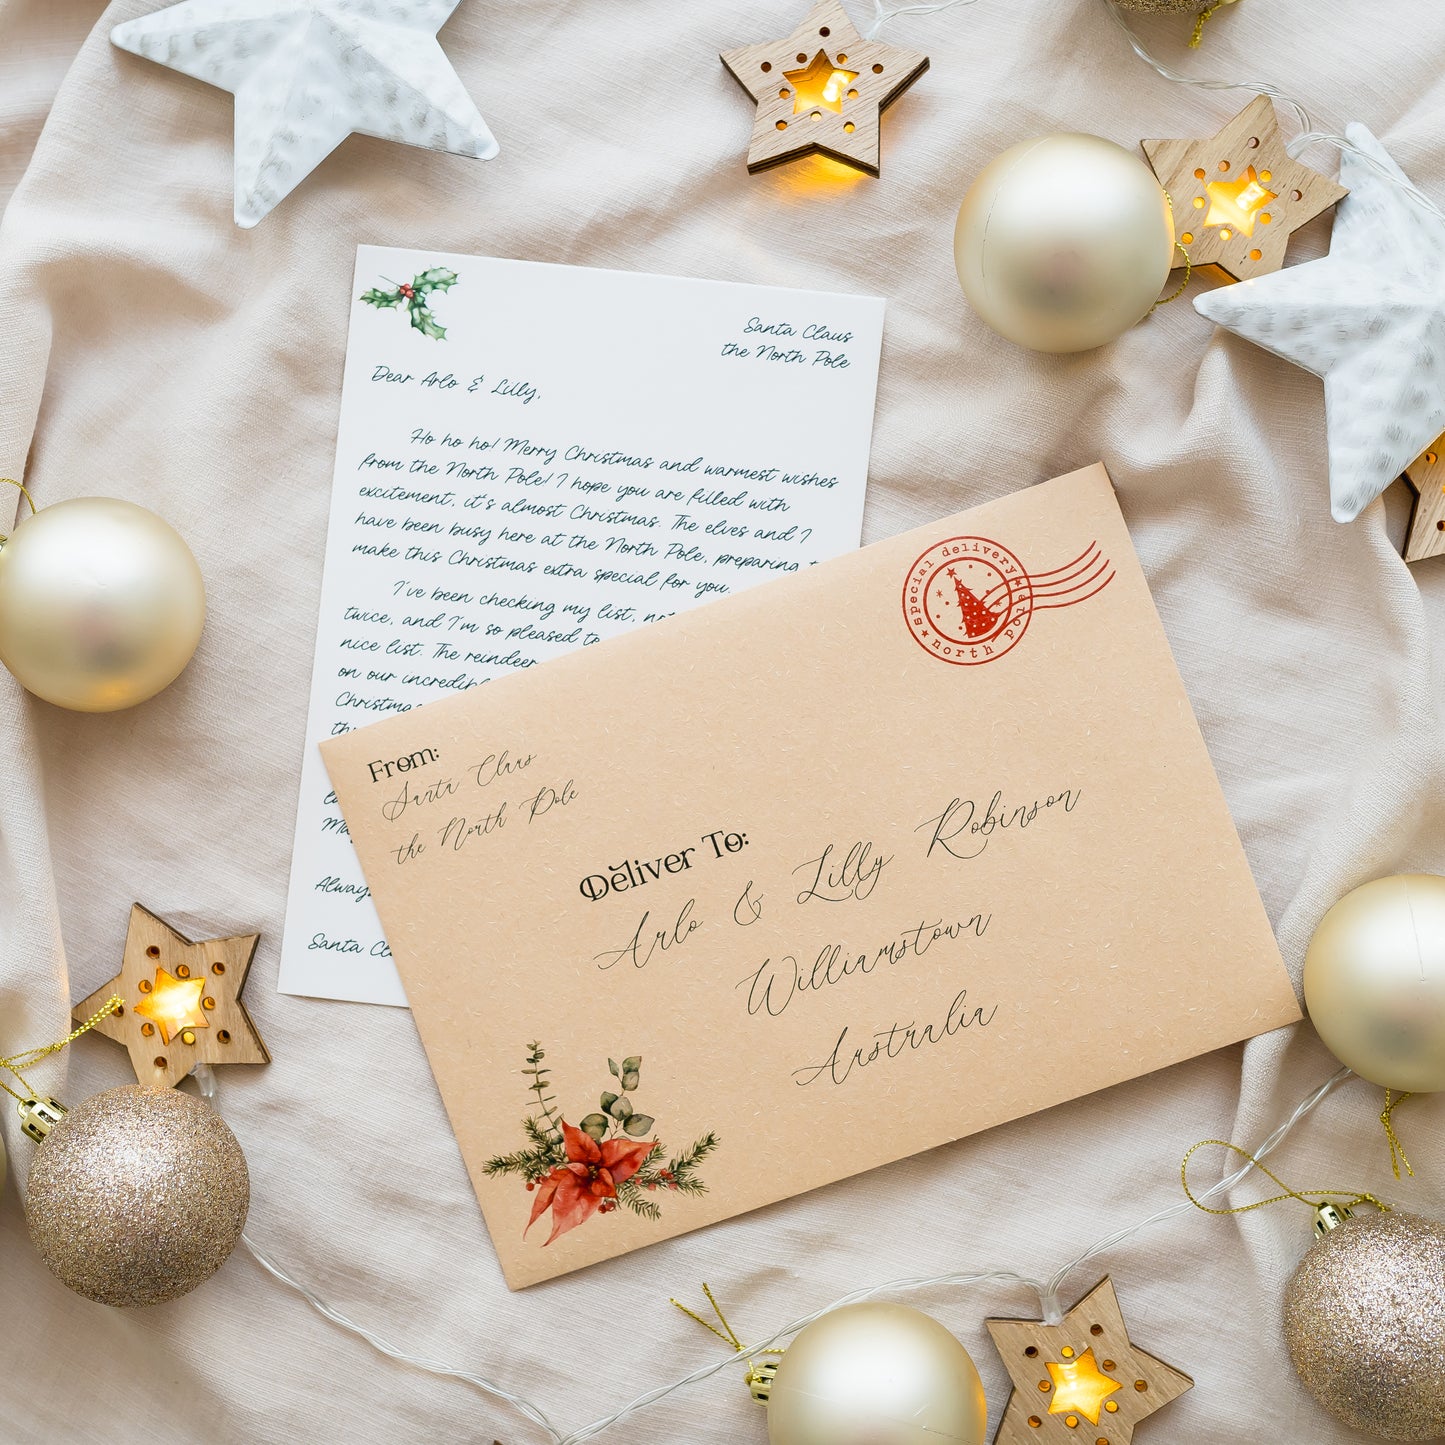 Santa Claus
the North Pole
Dear Arlo & Lilly,
Ho ho ho! Merry Christmas and warmest wishes
from the North Pole! I hope you are filled with
excitement, it's almost Christmas. The elves and I
have been busy here at the North Pole, preparing
make this Christmas extra special for you.
I've been checking my list,
twice, and I'm so pleased to
nice list. The reindeer
on our
Christmas
Santa
special delivery
north pole
From:
Santa Claus
the North Pole
Deliver To:
Arlo & Lilly Robinson
Williamstown
Australia